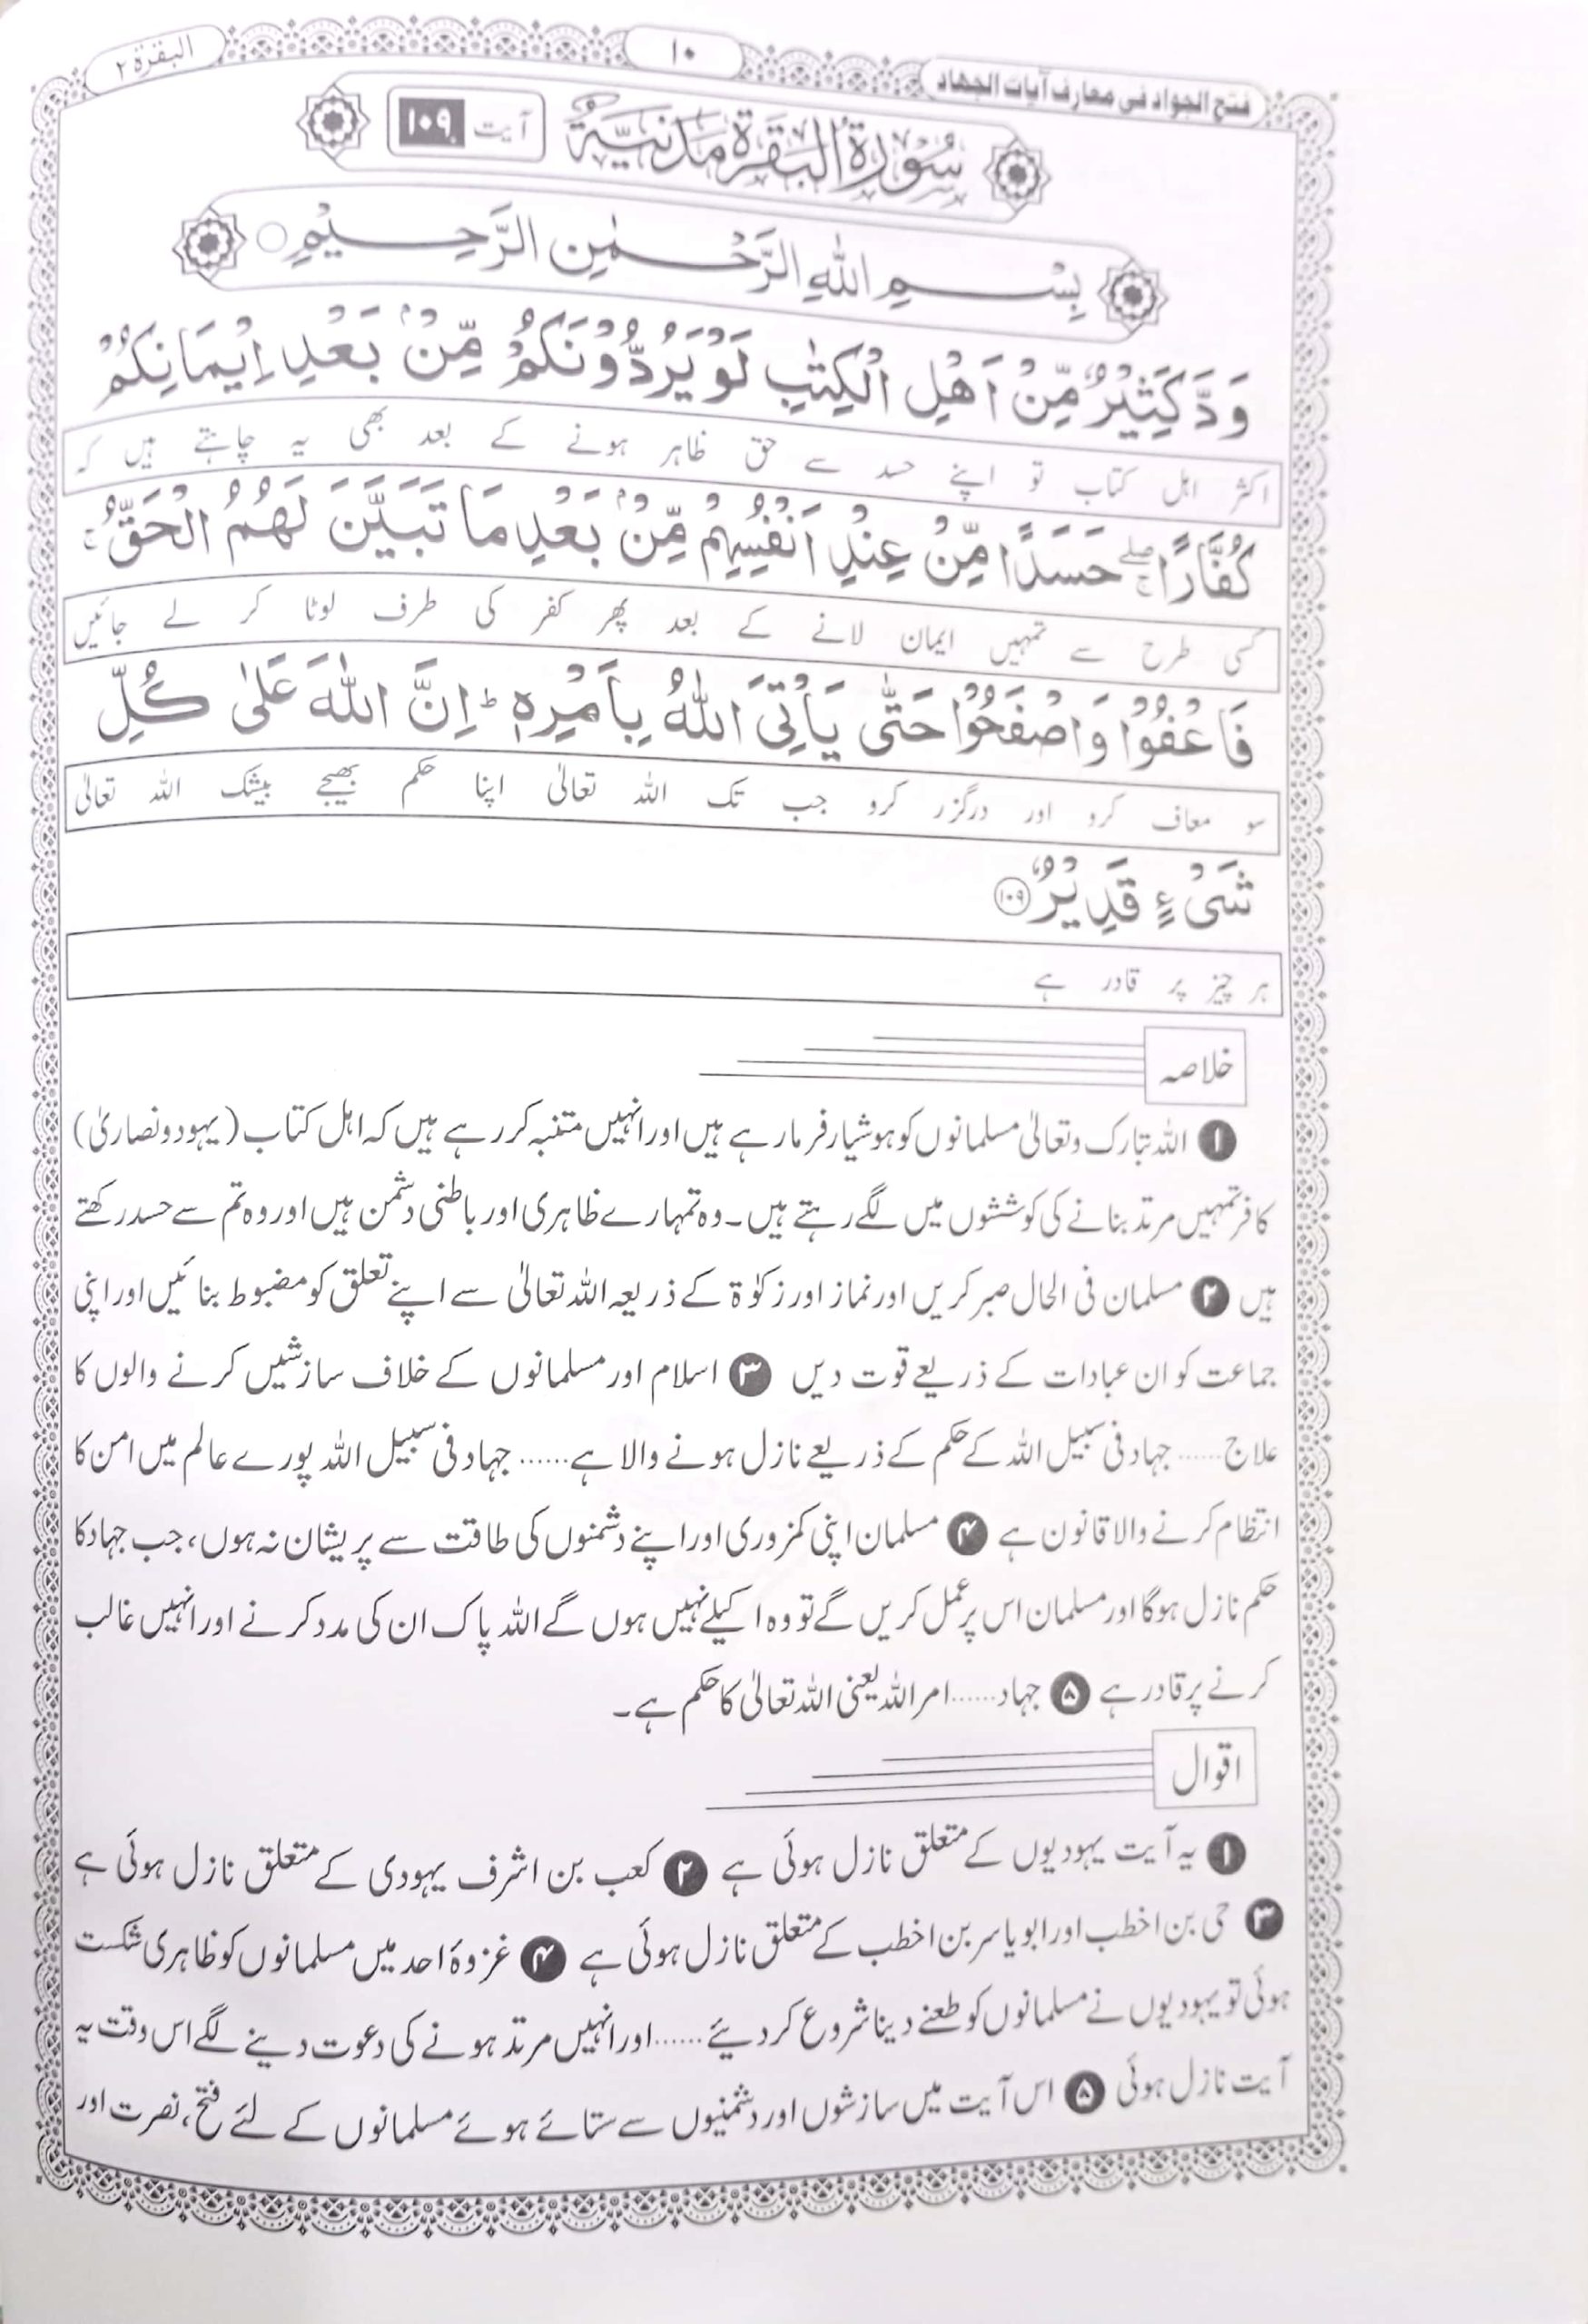 فتح الجواد فی معارف آیات الجهاد
۱۰
البقرۃ ۲
سُوْرَةُ الْبَقَرَةِ مَدَنِيَّةٌ آیت ۱۰۹
بِسْمِ اللهِ الرَّحْمٰنِ الرَّحِيْمِ
وَدَّ كَثِيْرٌ مِّنْ اَهْلِ الْكِتٰبِ لَوْ يَرُدُّوْنَكُمْ مِّنْۢ بَعْدِ اِيْمَانِكُمْ
اکثر اہل کتاب تو اپنے حسد سے حق ظاہر ہونے کے بعد بھی یہ چاہتے ہیں کہ
كُفَّارًا ۖۚ حَسَدًا مِّنْ عِنْدِ اَنْفُسِهِمْ مِّنْۢ بَعْدِ مَا تَبَيَّنَ لَهُمُ الْحَقُّ ۚ
کسی طرح سے تمہیں ایمان لانے کے بعد پھر کفر کی طرف لوٹا کر لے جائیں
فَاعْفُوْا وَاصْفَحُوْا حَتّٰى يَاْتِىَ اللّٰهُ بِاَمْرِهٖ ؕ اِنَّ اللّٰهَ عَلٰى كُلِّ
سو معاف کرو اور درگزر کرو جب تک اللہ تعالیٰ اپنا حکم بھیجے بیشک اللہ تعالیٰ
شَىْءٍ قَدِيْرٌ ۱۰۹
ہر چیز پر قادر ہے
خلاصہ
۱ اللہ تبارک وتعالیٰ مسلمانوں کو ہوشیار فرمارہے ہیں اور انہیں متنبہ کررہے ہیں کہ اہل کتاب (یہود و نصاریٰ)
کافر تمہیں مرتد بنانے کی کوششوں میں لگے رہتے ہیں۔ وہ تمہارے ظاہری اور باطنی دشمن ہیں اور وہ تم سے حسد رکھتے
ہیں ۲ مسلمان فی الحال صبر کریں اور نماز اور زکوٰۃ کے ذریعہ اللہ تعالیٰ سے اپنے تعلق کو مضبوط بنائیں اور اپنی
جماعت کو ان عبادات کے ذریعے قوت دیں ۳ اسلام اور مسلمانوں کے خلاف سازشیں کرنے والوں کا
علاج...... جہاد فی سبیل اللہ کے حکم کے ذریعے نازل ہونے والا ہے...... جہاد فی سبیل اللہ پورے عالم میں امن کا
انتظام کرنے والا قانون ہے ۴ مسلمان اپنی کمزوری اور اپنے دشمنوں کی طاقت سے پریشان نہ ہوں، جب جہاد کا
حکم نازل ہوگا اور مسلمان اس پر عمل کریں گے تو وہ اکیلے نہیں ہوں گے اللہ پاک ان کی مدد کرنے اور انہیں غالب
کرنے پر قادر ہے ۵ جہاد...... امر اللہ یعنی اللہ تعالیٰ کا حکم ہے۔
اقوال
۱ یہ آیت یہودیوں کے متعلق نازل ہوئی ہے ۲ کعب بن اشرف یہودی کے متعلق نازل ہوئی ہے
۳ حی بن اخطب اور ابو یاسر بن اخطب کے متعلق نازل ہوئی ہے ۴ غزوۂ احد میں مسلمانوں کو ظاہری شکست
ہوئی تو یہودیوں نے مسلمانوں کو طعنے دینا شروع کردیئے...... اور انہیں مرتد ہونے کی دعوت دینے لگے اس وقت یہ
آیت نازل ہوئی ۵ اس آیت میں سازشوں اور دشمنیوں سے ستائے ہوئے مسلمانوں کے لئے فتح، نصرت اور